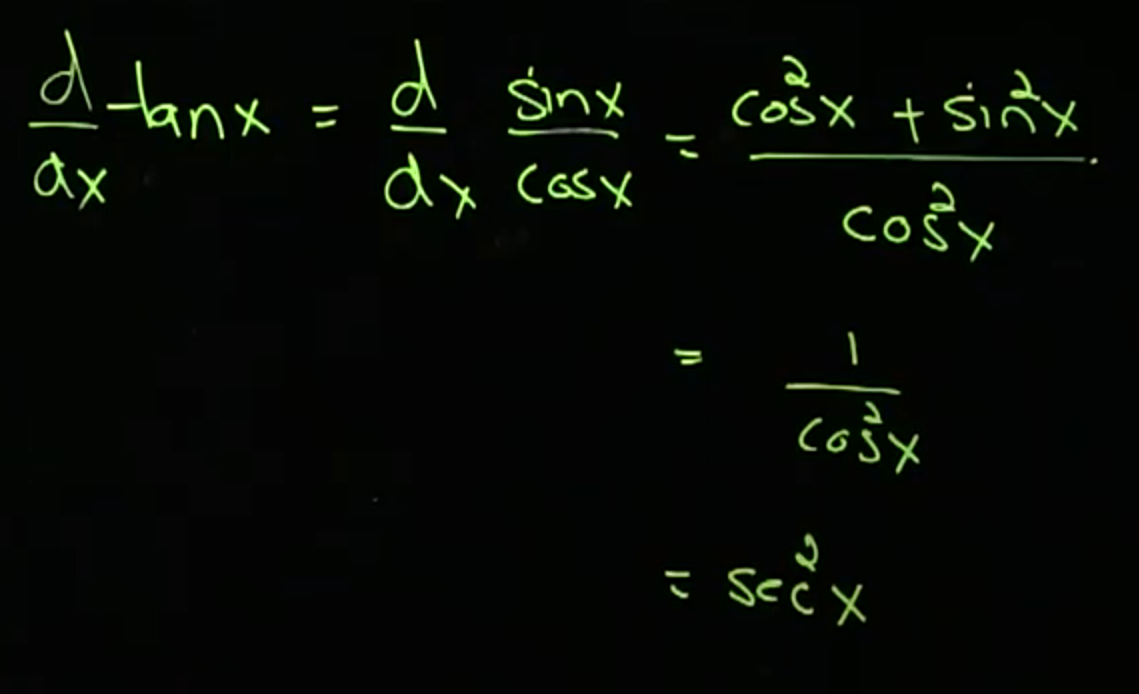 d/dx tanx = d/dx sinx/cosx = cos²x + sin²x / cos²x
= 1/cos²x
= sec²x